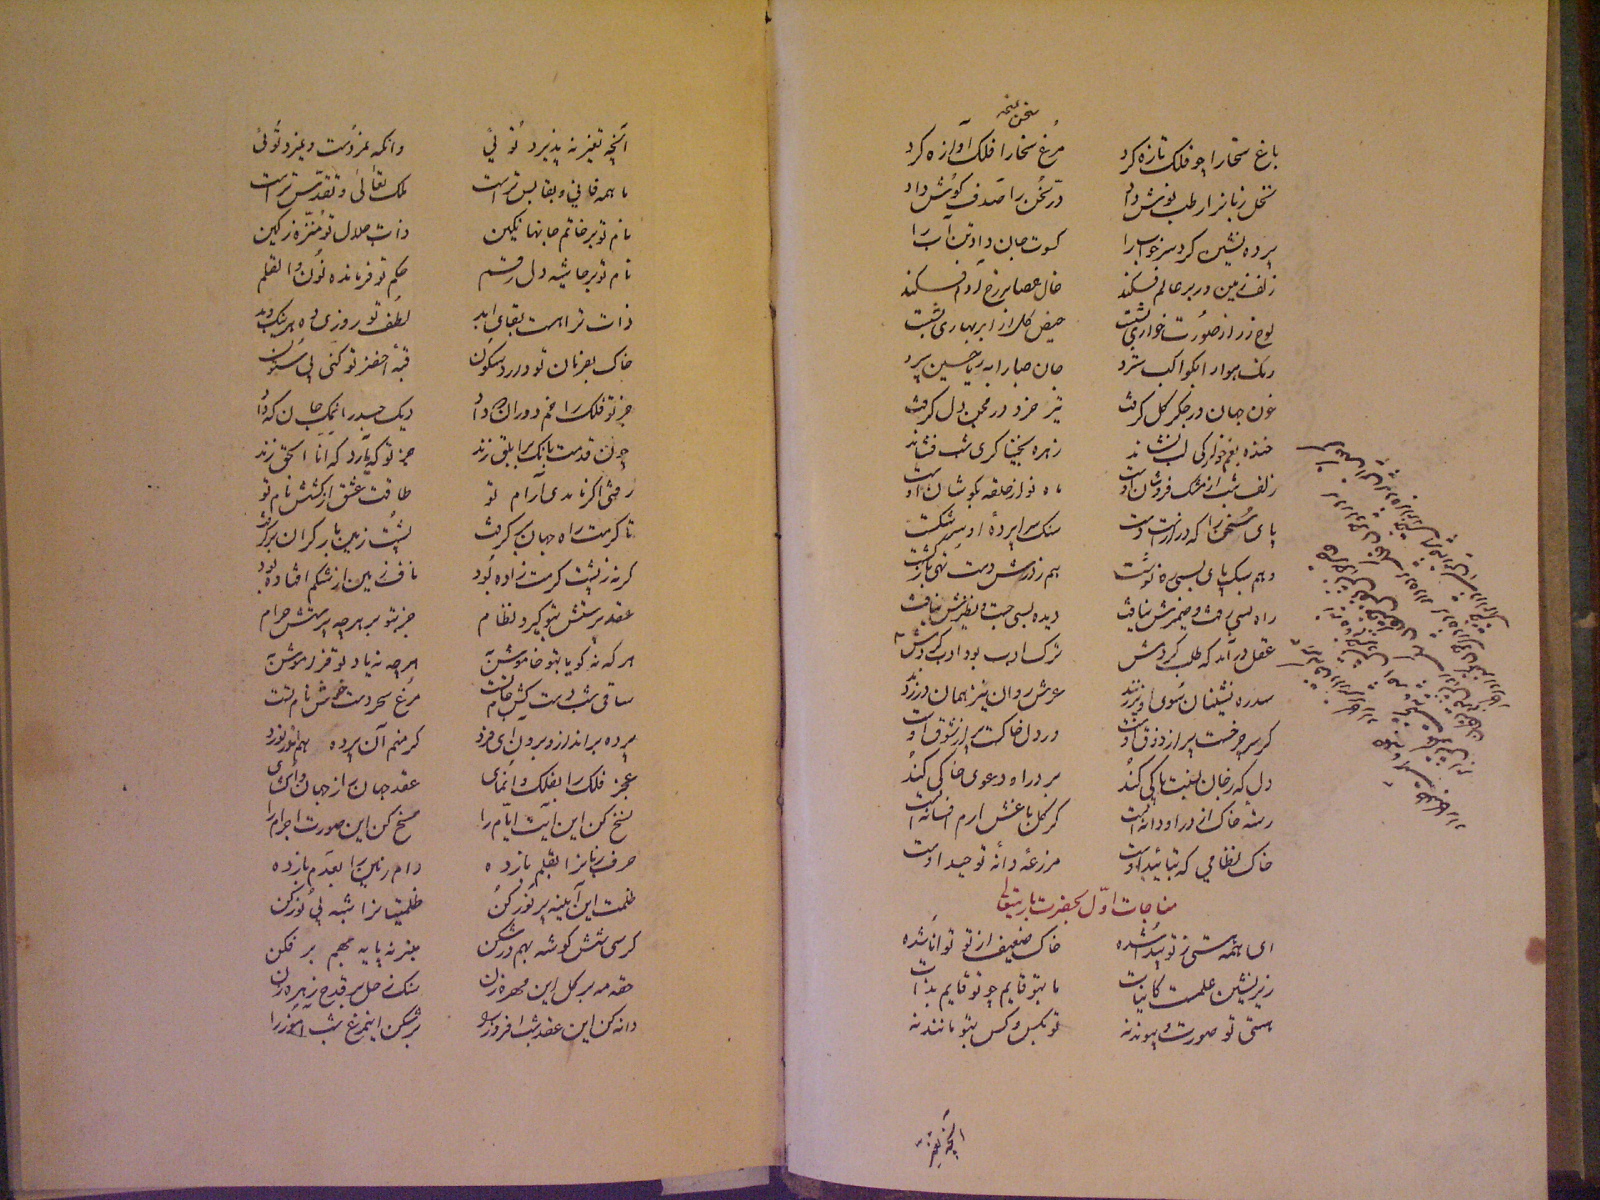 سخن نسخه
باغ سخا را چو فلک تازه کرد مرغ سخا را فلک آوازه کرد
نخل زبانرا رطب نوش داد درّ سخن را صدف گوش داد
پرده نشین کرد سر خواب را کسوت جان داد تن آب را
زلف زمین در بر عالم فکند خال عصا بر رخ آدم فکند
لوح زر از صورت خواری بشست حیض گل از ابر بهاری بشست
زنگ هوا را بکواکب سترد جان صبا را به ریاحین سپرد
خون جهان در جگر گل گرفت نبض خرد در مجس دل گرفت
خنده بغمخوارگی لب نشاند زهره بخنیاگری شب فشاند
زلف شب از مشک فروشان اوست ماه نو از حلقه بگوشان اوست
پای سخن را که درازست دست سنگ سراپردهٔ او سر شکست
وهم سبک پای بسی ره نوشت هم ز درش دست تهی بازگشت
راه بسی رفت و ضمیرش نیافت دیده بسی جست و نظیرش نیافت
عقل درآمد که طلب کردمش ترک ادب بود ادب کردمش
سدره نشینان سوی او پر زدند عرش روان نیز همان در زدند
گر سر چرخست پر از ذوق اوست ور دل خاکست پر از شوق اوست
دل که ز جان نسبت پاکی کند بر در او دعوی خاکی کند
رسته خاک از در او دانه است کز گل باغش ارم افسانه است
خاک نظامی که بتائید اوست مزرعهٔ دانهٔ توحید اوست
مناجات اوّل بحضرت باریتعالی
ای همه هستی ز تو پیدا شده خاک ضعیف از تو توانا شده
زیرنشین علمت کاینات ما بتو قایم چو تو قایم بذات
هستی تو صورت و پیوند نه تو بکس و کس بتو مانند نه
آنچه تغیر
آنچه تغیر نه پذیرد توئی وانکه نمردست و نمیرد توئی
ما همه فانی و بقا بس تراست ملک تعالی و تقدّس تراست
نام تو بر خاتم جانها نگین ذات جلال تو منزّه ز کین
نام تو بر حاشیه دل رقم حکم تو فرمانده نون و القلم
ذات تراهست بقای ابد لطف تو روزی ده هر نیک و بد
خاک بفرمان تو دارد سکون قبّه اخضر تو کنی بی ستون
جز تو فلک را خم دوران که داد دیگ جسد را نمک جان که داد
چون قدمت بانک بر ابلق زند جز تو که یارد که انا الحق زند
رفتی اگر نامدی آرام تو طاقت عشق از کشش نام تو
تا کرمت راه جهان برگرفت پشت زمین بار گران برگرفت
گر نه ز پشت کرمت زاده بود ناف زمین از شکم افتاده بود
عقد پرستش بتو گیرد نظام جز بتو بر هرچه پرستش حرام
هر که نه گویا بتو خاموش به هر چه نه یاد تو فراموش به
ساقی شب دست کش جام تست مرغ سحر دست خوش نام تست
پرده برانداز و برون آی فرد گر منم آن پرده بهم در نورد
عجز فلک را بفلک وانمای عقد جهان را ز جهان واگشای
نسخ کن این آیت ایّام را مسخ کن این صورت اجرام را
حرف زبانرا بقلم باز ده وام زمین را بعدم باز ده
ظلمتیانرا بنه بی نور کن
کرسی شش گوشه بهم در شکن منبر نه پایه بهم بر فکن
حقه مه بر گل این مهره زن سنگ زحل بر قدح زهره زن
دانه کن این عقد شب افروز را پر شکن این مرغ شب و روز را